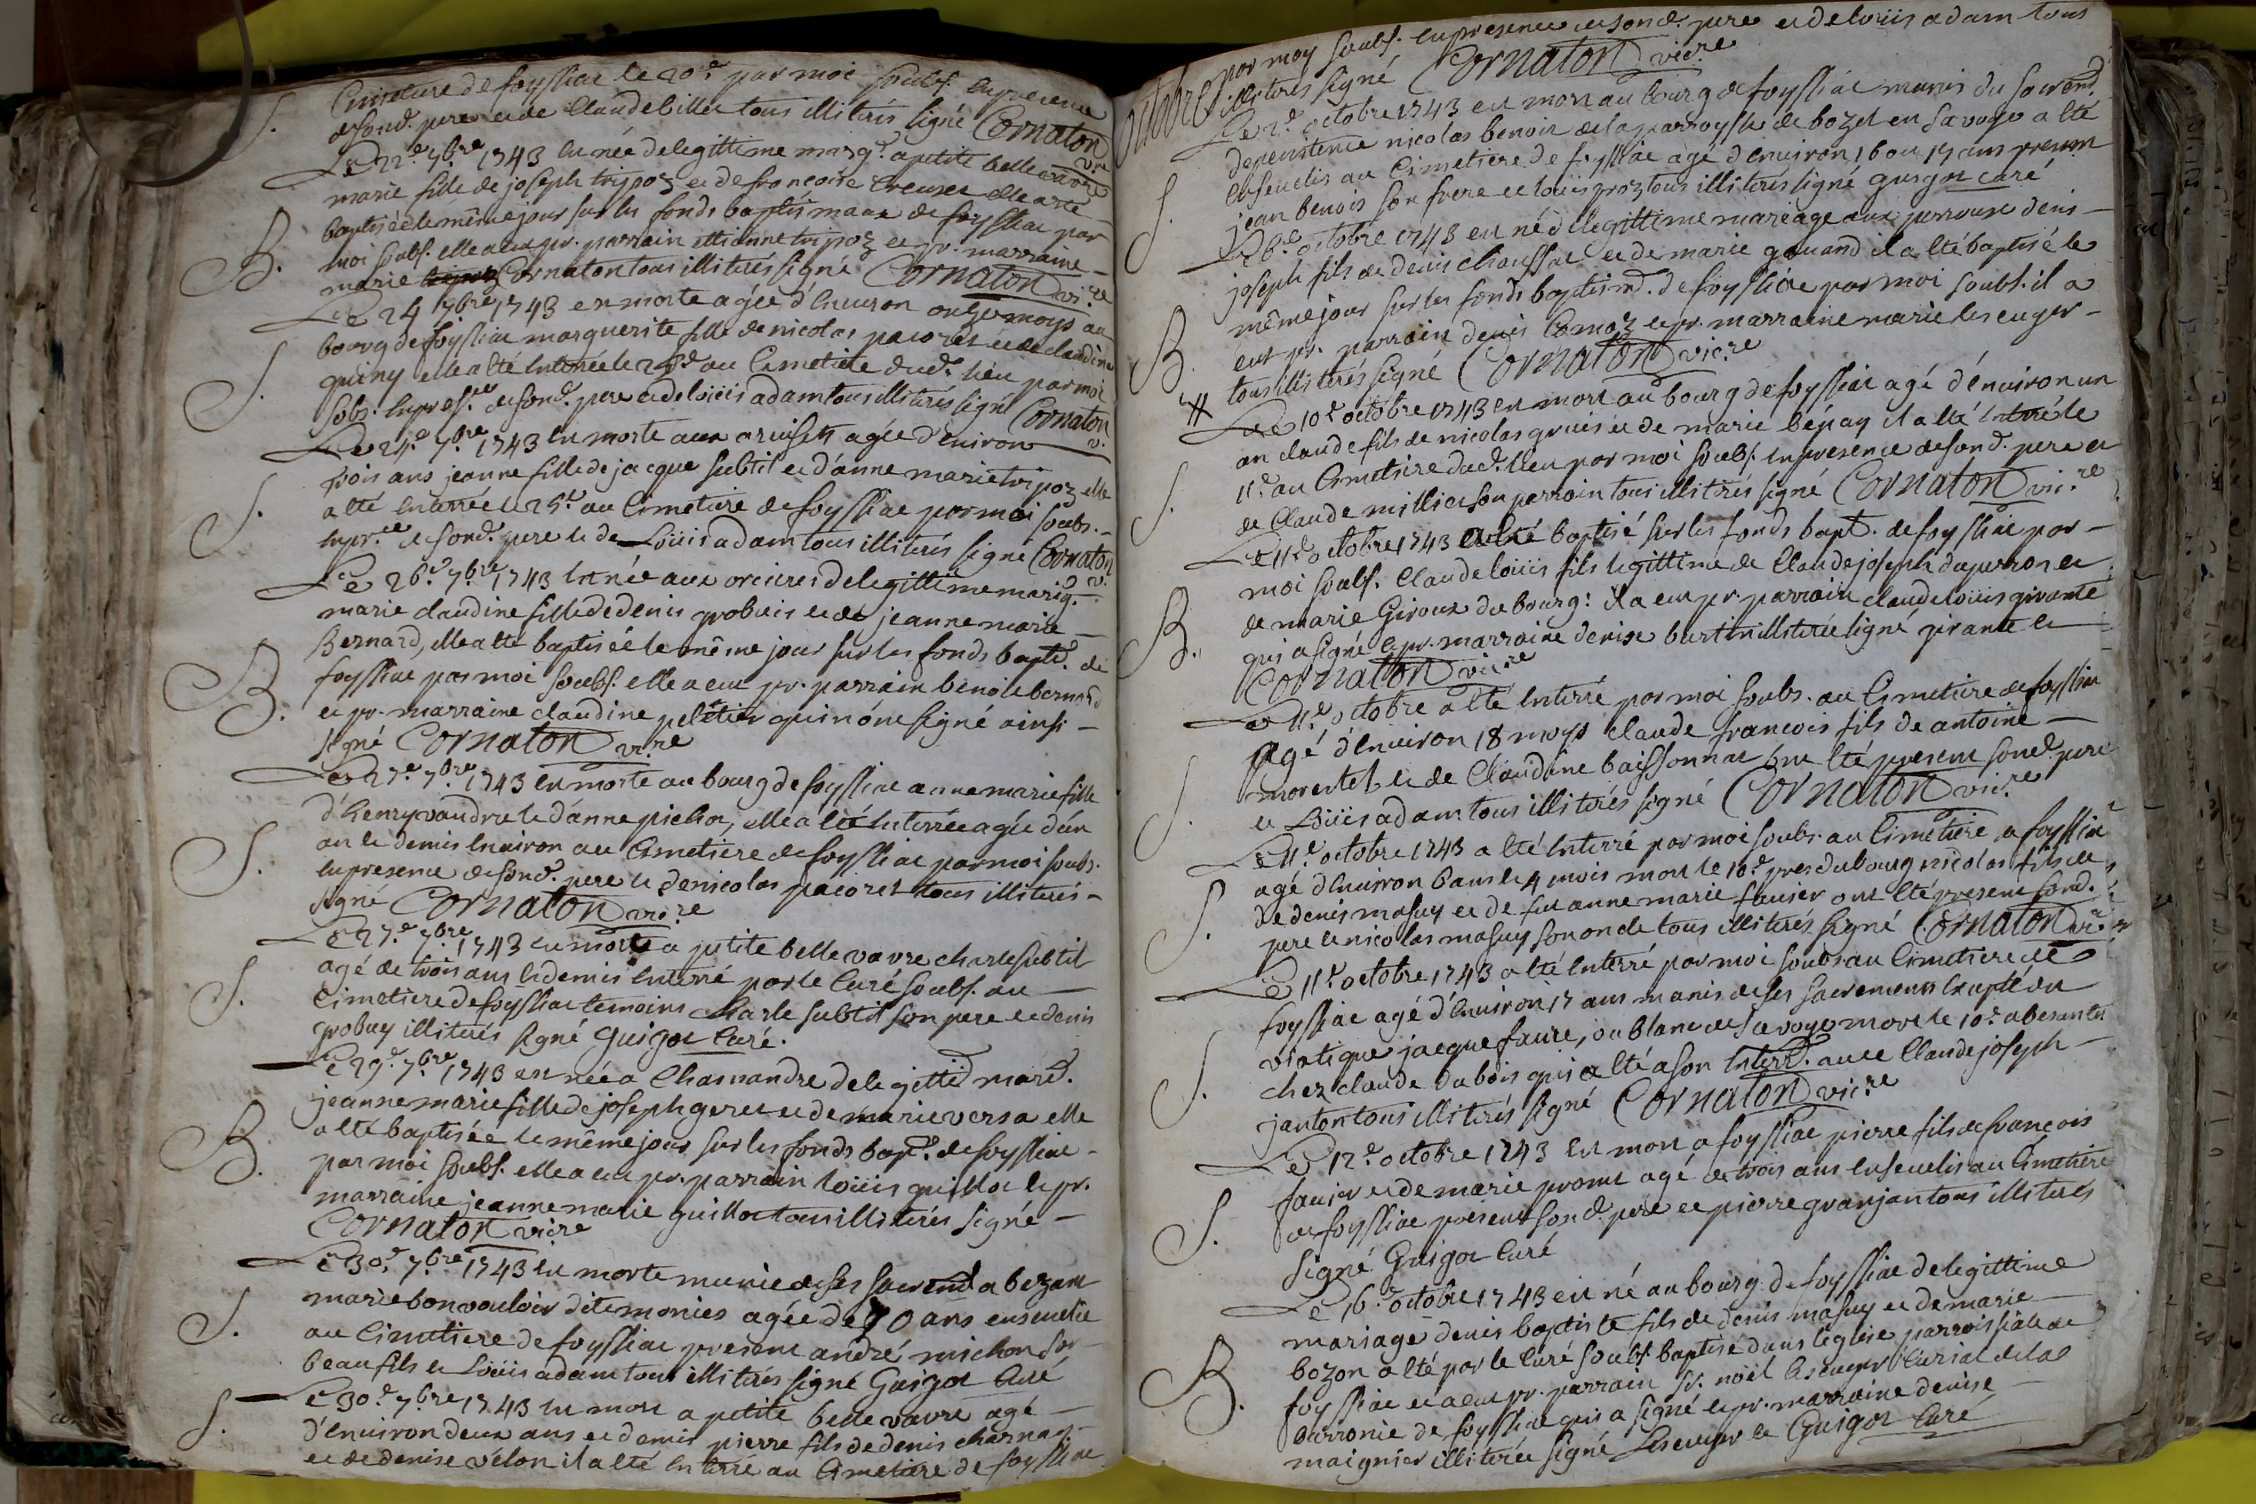 Cimetiere de foyssiac le 20.e par moi soubs. en presence
de sond. pere et de Claude billier tous illitérés signé Cornaton vic.re
S.
Le 22.e 7bre 1743 est née de legittime marig. a petite belle vavre
marie fille de joseph tripoz et de francoise creuset elle a été
baptisée le même jour sur les fonds baptismaux de foyssiac par
B.
moi soubs. elle a eu pr. parrain ettienne tripoz et pr. marraine
marie Cornaton tous illitérés signé Cornaton vic.re
Le 24 7bre 1743 est morte agée d'environ onze moys au
bourg de foyssiac marguerite fille de nicolas pacoret et de claudine
S.
guiny elle a été enterrée le 25.e au Cimetiere dud. lieu par moi
sobs. en pres.ce de sond. pere et de loüis adam tous illitérés signé Cornaton v.
Le 24.e 7bre 1743 est morte aux agée d'environ
trois ans jeanne fille de jacque subtil et d'anne marie tripoz elle
S.
a été enterrée le 25.e au Cimetiere de foyssiac par moi soubs.
en pr.ce de sond. pere et de Loüis adam tous illitérés signé Cornaton v.
Le 26.e 7bre 1743 est née aux orcieres de legittime marig.
marie claudine fille de denis probuis et de jeanne marie
Bernard, elle a été baptisée le même jour sur les fonds baptis. de
B.
foyssiac par moi soubs. elle a eu pr. parrain benoit bernard
et pr. marraine claudine peletier qui n'ont signé ainsi
signé Cornaton vic.re
Le 27.e 7bre 1743 est morte au bourg de foyssiac anne marie fille
d'henry vaudru et d'anne pichon, elle a été enterrée agée d'un
S.
an et demi environ au Cimetiere de foyssiac par moi soubs.
en presence de sond. pere et de nicolas pacoret tous illitérés
signé Cornaton vic.re
Le 27.e 7bre 1743 est morte a petite belle vavre charle subtil
S.
agé de trois ans et demi enterré par le Curé soubs. au
Cimetiere de foyssiac temoins charle subtil son pere et denis
probuy illitérés signé Guigot Curé.
Le 29.e 7bre 1743 est née a Chamandre de legittid. mard.
jeanne marie fille de joseph geret et de marie versa elle
B.
a été baptisée le même jour sur les fonds bapt. de foyssiac
par moi soubs. elle a eu pr. parrain loüis guillot et pr.
marraine jeanne marie guillot tous illitérés signé
Cornaton vicre
Le 30.e 7bre 1743 est morte munie de ses sacremd. a bezant
S.
marie bonvouloir dite monier agée de 70 ans ensevelie
au Cimetiere de foyssiac present andré michon son
beau fils et Loüis adam tous illitérés signé Guigot Curé
S.
Le 30.e 7bre 1743 est mort a petite belle vavre agé
d'environ deux ans et demi pierre fils de denis charnay
et de denise vélon il a été enterré au Cimetiere de foyssiac
octobre par moy soubs. en presence de sond. pere et de loüis adam tous
illitérés signé Cornaton vic.re
Le 2.e octobre 1743 est mort au bourg de foyssiac munis du sacremd.
de penitence nicolas benoit de la parroysse de bozel en savoye a été
S.
ensevelis au Cimetiere de foyssiac agé d'environ 16 ou 17 ans present
jean benois son frere et loüis proz tous illitérés signé guigot curé
Le 6.e octobre 1743 est né de legittime mariage aux perroux denis
joseph fils de denis chaussat et de marie gouvand il a été baptisé le
B.
même jour sur les fonds baptismd. de foyssiac par moi soubs. il a
eut pr. parrain denis Comoz et pr. marraine marie lescuyer
tous illitérés signé Cornaton vic.re
Le 10.e octobre 1743 est mort au bourg de foyssiac agé d'environ un
S.
an claude fils de nicolas gruis et de marie bépay il a été enterré le
11.e au Cimetiere dud. lieu par moi soubs. en presence de sond. pere et
de Claude millier son parrain tous illitérés signé Cornaton vic.re
Le 11.e octobre 1743 a été baptisé sur les fonds bapt. de foyssiac par
B.
moi soubs. Claude loüis fils legittime de Claude joseph duperron et
de marie Giroux du bourg: il a eu pr. parrain claude loüis girante
qui a signé et pr. marraine denise burtin illiterée signé girante et
Cornaton vic.re
Le 11.e octobre a été enterré par moi soubs. au Cimetiere de foyssiac
S.
agé d'environ 18 moys claude francois fils de antoine
morestel et de Claudine baissonnat ont été present sond. pere
et Loüis adam tous illitérés signé Cornaton vic.re
Le 11.e octobre 1743 a été enterré par moi soubs. au Cimetiere a foyssiac
S.
agé d'environ 6 ans et 4 mois mort le 10.e pres du bourg nicolas fils de
de denis masuy et de fut anne marie fauier ont été present sond.
pere et nicolas masuy son oncle tous illitérés signé Cornaton vic.re
Le 11.e octobre 1743 a été enterré par moi soubs au Cimetiere de
foyssiac agé d'environ 17 ans munis de ses sacrements excepté du
S.
viatique jacque faure, ou blanc de savoye mort le 10.e a besantet
chez claude dubois qui a été a son enterd. avec Claude joseph
janton tous illitérés signé Cornaton vic.re
Le 12.e octobre 1743 est mort a foyssiac pierre fils de francois
S.
fauier et de marie promt agé de trois ans ensevelis au Cimetiere
de foyssiac present sond. pere et pierre granjan tous illitérés
signé Guigot Curé
Le 16.e octobre 1743 est né au bourg de foyssiac de legittime
mariage denis baptiste fils de denis masuy et de marie
B.
bozon a été par le Curé soubs. baptisé dans l'eglise parroissiale de
foyssiac et a eu pr. parrain sr. noël lescuyer Curial de la
barronie de foyssiac qui a signé et pr. marraine denise
maignier illiterée signé Lescuyer et Guigot Curé